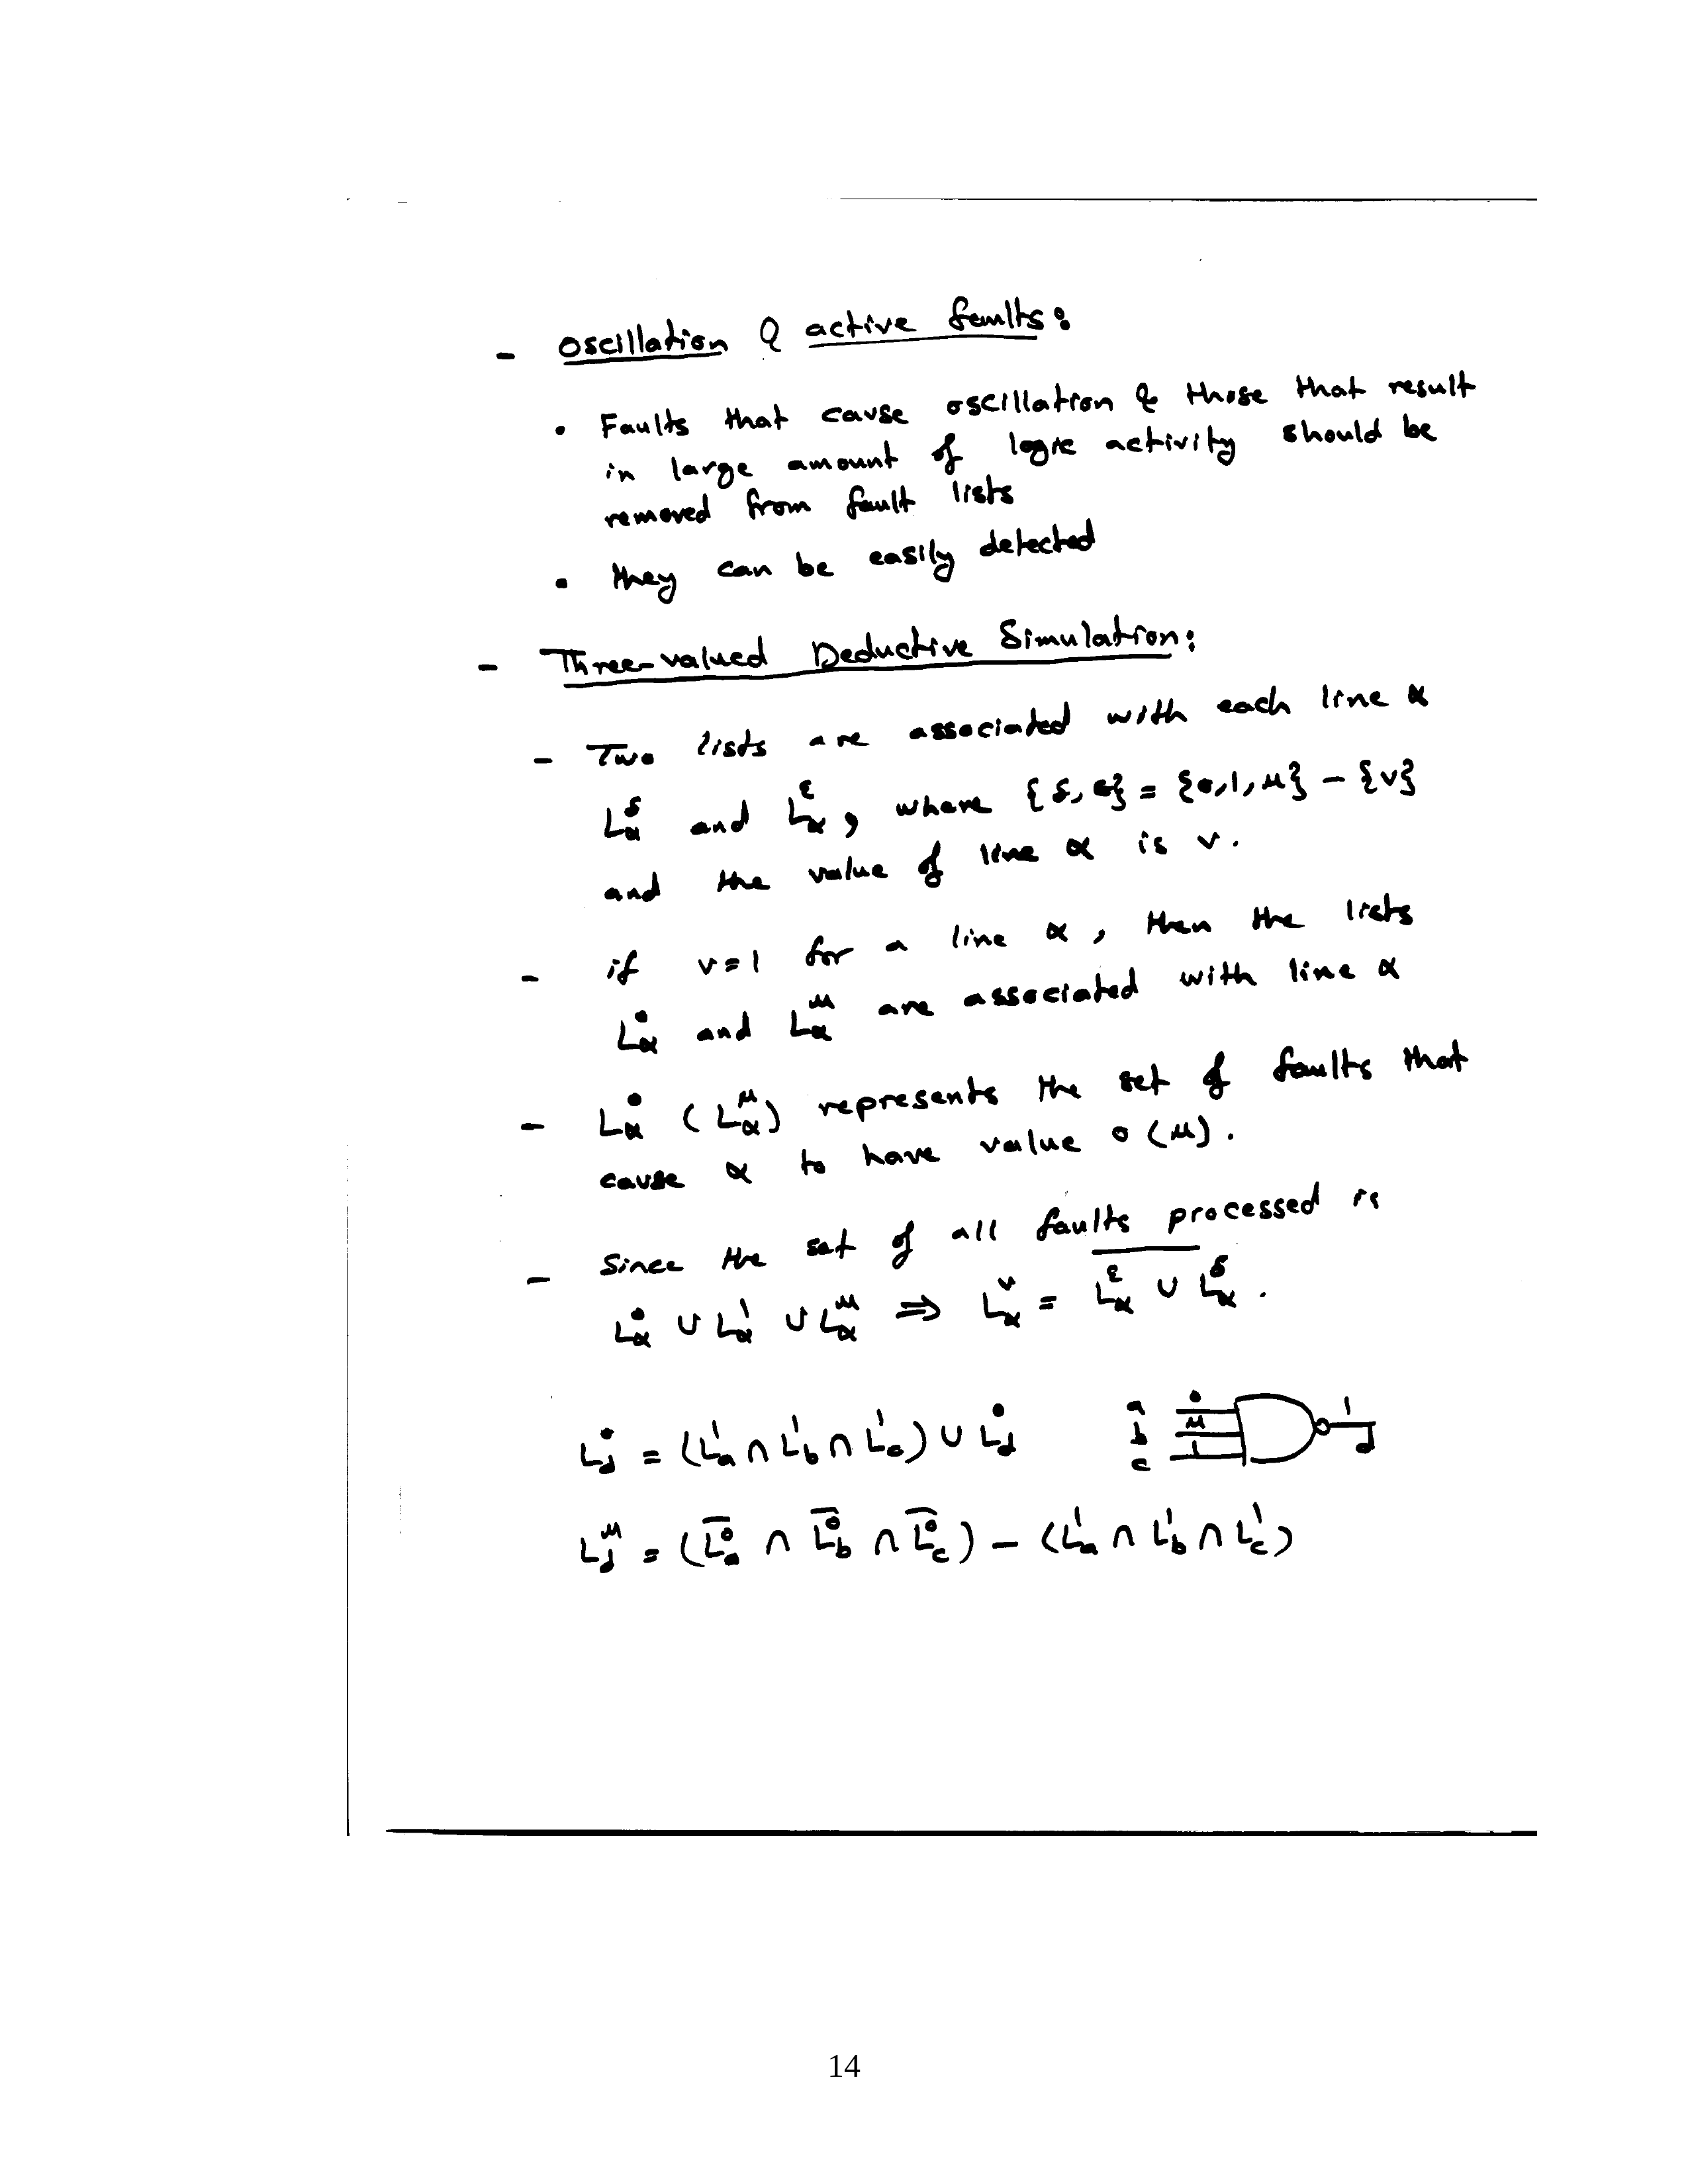 - Oscillation & active faults:
• Faults that cause oscillation & those that result
in large amount of logic activity should be
removed from fault lists
• they can be easily detected
- Three-valued Deductive Simulation:
- Two lists are associated with each line α
L_α^δ and L_α^ε, where {δ, ε} = {0,1,μ} - {v}
and the value of line α is v.
- if v=1 for a line α, then the lists
L_α^0 and L_α^μ are associated with line α
- L_α^0 (L_α^μ) represents the set of faults that
cause α to have value 0 (μ).
- Since the set of all faults processed is
L_α^0 ∪ L_α^1 ∪ L_α^μ ⇒ L_α^v = \overline{L_α^ε ∪ L_α^δ}.
L_d^0 = (L_a^1 ∩ L_b^1 ∩ L_c^1) ∪ L_d^0
a 0
b μ
c 1
1
d
L_d^μ = (\overline{L_a^0} ∩ \overline{L_b^0} ∩ \overline{L_c^0}) - (L_a^1 ∩ L_b^1 ∩ L_c^1)
14